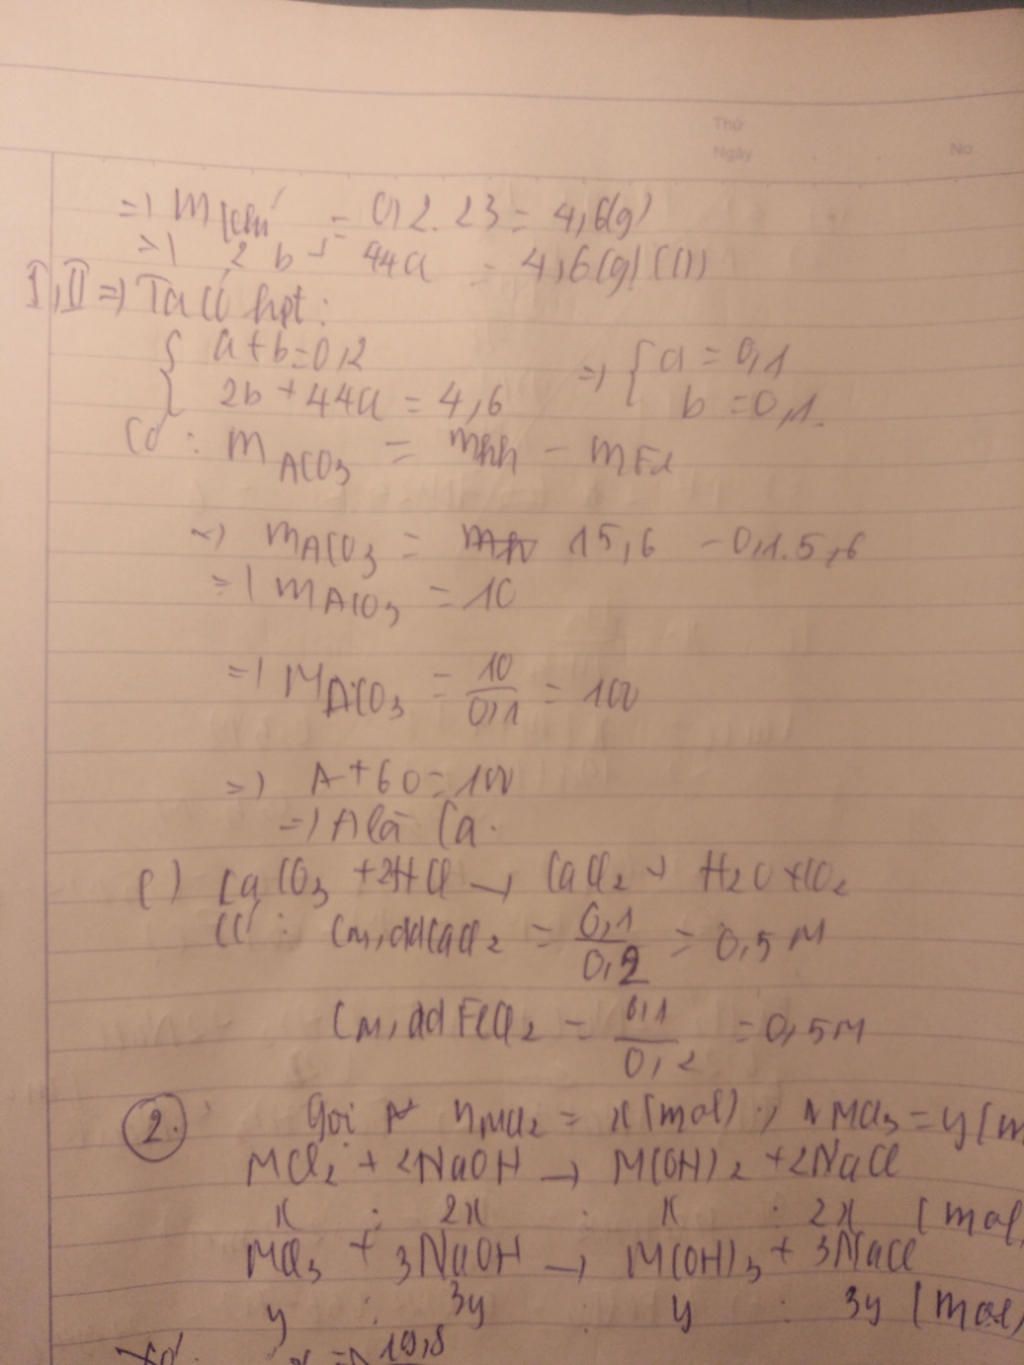 Thứ
Ngày No
=> m khí = 0,2.23 = 4,6(g)
=> 2b + 44a = 4,6(g) (II)
I, II => Ta có hpt:
{ a+b=0,2 => { a = 0,1
2b+44a = 4,6 b = 0,1.
Có: mACO3 = mhh - mFe
=> mACO3 = 15,6 - 0,1.5,6
=> mACO3 = 10
=> MACO3 = 10/0,1 = 100
=> A+60=100
=> A là Ca.
c) CaCO3 + 2HCl → CaCl2 + H2O + CO2
Có: CM,ddCaCl2 = 0,1/0,2 = 0,5M
CM,ddFeCl2 = 0,1/0,2 = 0,5M
2. Gọi nMCl2 = x(mol); nMCl3 = y(m
MCl2 + 2NaOH → M(OH)2 + 2NaCl
x : 2x : x : 2x (mol)
MCl3 + 3NaOH → M(OH)3 + 3NaCl
y : 3y : y : 3y (mol)
19,8